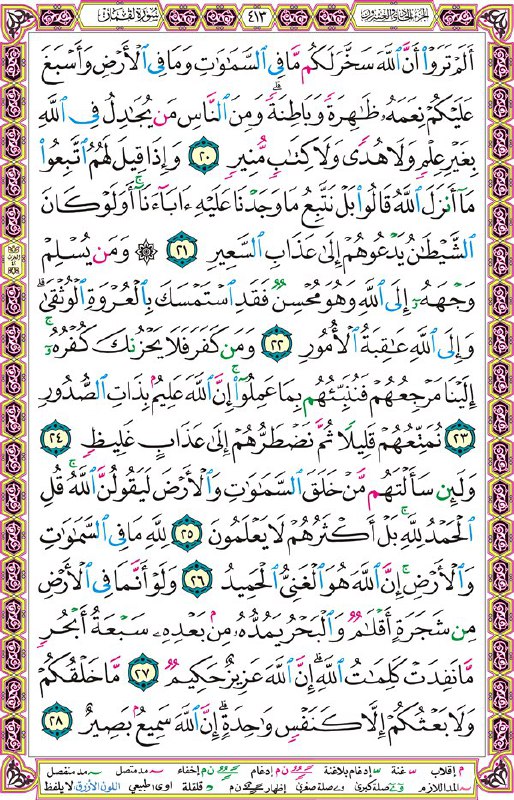 سُورَةُ لُقْمَان
٤١٣
الجزء الحادي والعشرون
أَلَمْ تَرَوْا۟ أَنَّ ٱللَّهَ سَخَّرَ لَكُم مَّا فِى ٱلسَّمَـٰوَٰتِ وَمَا فِى ٱلْأَرْضِ وَأَسْبَغَ
عَلَيْكُمْ نِعَمَهُۥ ظَـٰهِرَةً وَبَاطِنَةً ۗ وَمِنَ ٱلنَّاسِ مَن يُجَـٰدِلُ فِى ٱللَّهِ
بِغَيْرِ عِلْمٍ وَلَا هُدًى وَلَا كِتَـٰبٍ مُّنِيرٍ ٢٠ وَإِذَا قِيلَ لَهُمُ ٱتَّبِعُوا۟
مَآ أَنزَلَ ٱللَّهُ قَالُوا۟ بَلْ نَتَّبِعُ مَا وَجَدْنَا عَلَيْهِ ءَابَآءَنَآ ۚ أَوَلَوْ كَانَ
ٱلشَّيْطَـٰنُ يَدْعُوهُمْ إِلَىٰ عَذَابِ ٱلسَّعِيرِ ٢١ ۞ وَمَن يُسْلِمْ
وَجْهَهُۥٓ إِلَى ٱللَّهِ وَهُوَ مُحْسِنٌ فَقَدِ ٱسْتَمْسَكَ بِٱلْعُرْوَةِ ٱلْوُثْقَىٰ ۗ
وَإِلَى ٱللَّهِ عَـٰقِبَةُ ٱلْأُمُورِ ٢٢ وَمَن كَفَرَ فَلَا يَحْزُنكَ كُفْرُهُۥٓ ۚ
إِلَيْنَا مَرْجِعُهُمْ فَنُنَبِّئُهُم بِمَا عَمِلُوٓا۟ ۚ إِنَّ ٱللَّهَ عَلِيمٌۢ بِذَاتِ ٱلصُّدُورِ
٢٣ نُمَتِّعُهُمْ قَلِيلًا ثُمَّ نَضْطَرُّهُمْ إِلَىٰ عَذَابٍ غَلِيظٍ ٢٤
وَلَئِن سَأَلْتَهُم مَّنْ خَلَقَ ٱلسَّمَـٰوَٰتِ وَٱلْأَرْضَ لَيَقُولُنَّ ٱللَّهُ ۚ قُلِ
ٱلْحَمْدُ لِلَّهِ ۚ بَلْ أَكْثَرُهُمْ لَا يَعْلَمُونَ ٢٥ لِلَّهِ مَا فِى ٱلسَّمَـٰوَٰتِ
وَٱلْأَرْضِ ۚ إِنَّ ٱللَّهَ هُوَ ٱلْغَنِىُّ ٱلْحَمِيدُ ٢٦ وَلَوْ أَنَّمَا فِى ٱلْأَرْضِ
مِن شَجَرَةٍ أَقْلَـٰمٌ وَٱلْبَحْرُ يَمُدُّهُۥ مِنۢ بَعْدِهِۦ سَبْعَةُ أَبْحُرٍ
مَّا نَفِدَتْ كَلِمَـٰتُ ٱللَّهِ ۗ إِنَّ ٱللَّهَ عَزِيزٌ حَكِيمٌ ٢٧ مَّا خَلْقُكُمْ
وَلَا بَعْثُكُمْ إِلَّا كَنَفْسٍ وَٰحِدَةٍ ۗ إِنَّ ٱللَّهَ سَمِيعٌۢ بَصِيرٌ ٢٨
م إقلاب غنة إدغام بلاغنة ن م إدغام ن م إخفاء مد متصل مد منفصل
المد اللازم صلة كبرى صلة صغرى إظهار ن م قلقلة اوى طبيعي اللون الأزرق لا يلفظ